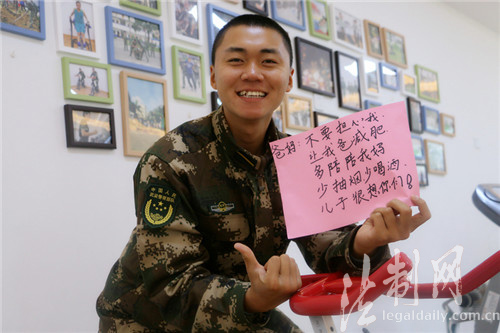 爸妈:不要担心我.
让我爸减肥
多陪陪我妈
少抽烟少喝酒.
儿子很想你们!
中国人民
武装警察部队
法制网
legaldaily.com.cn